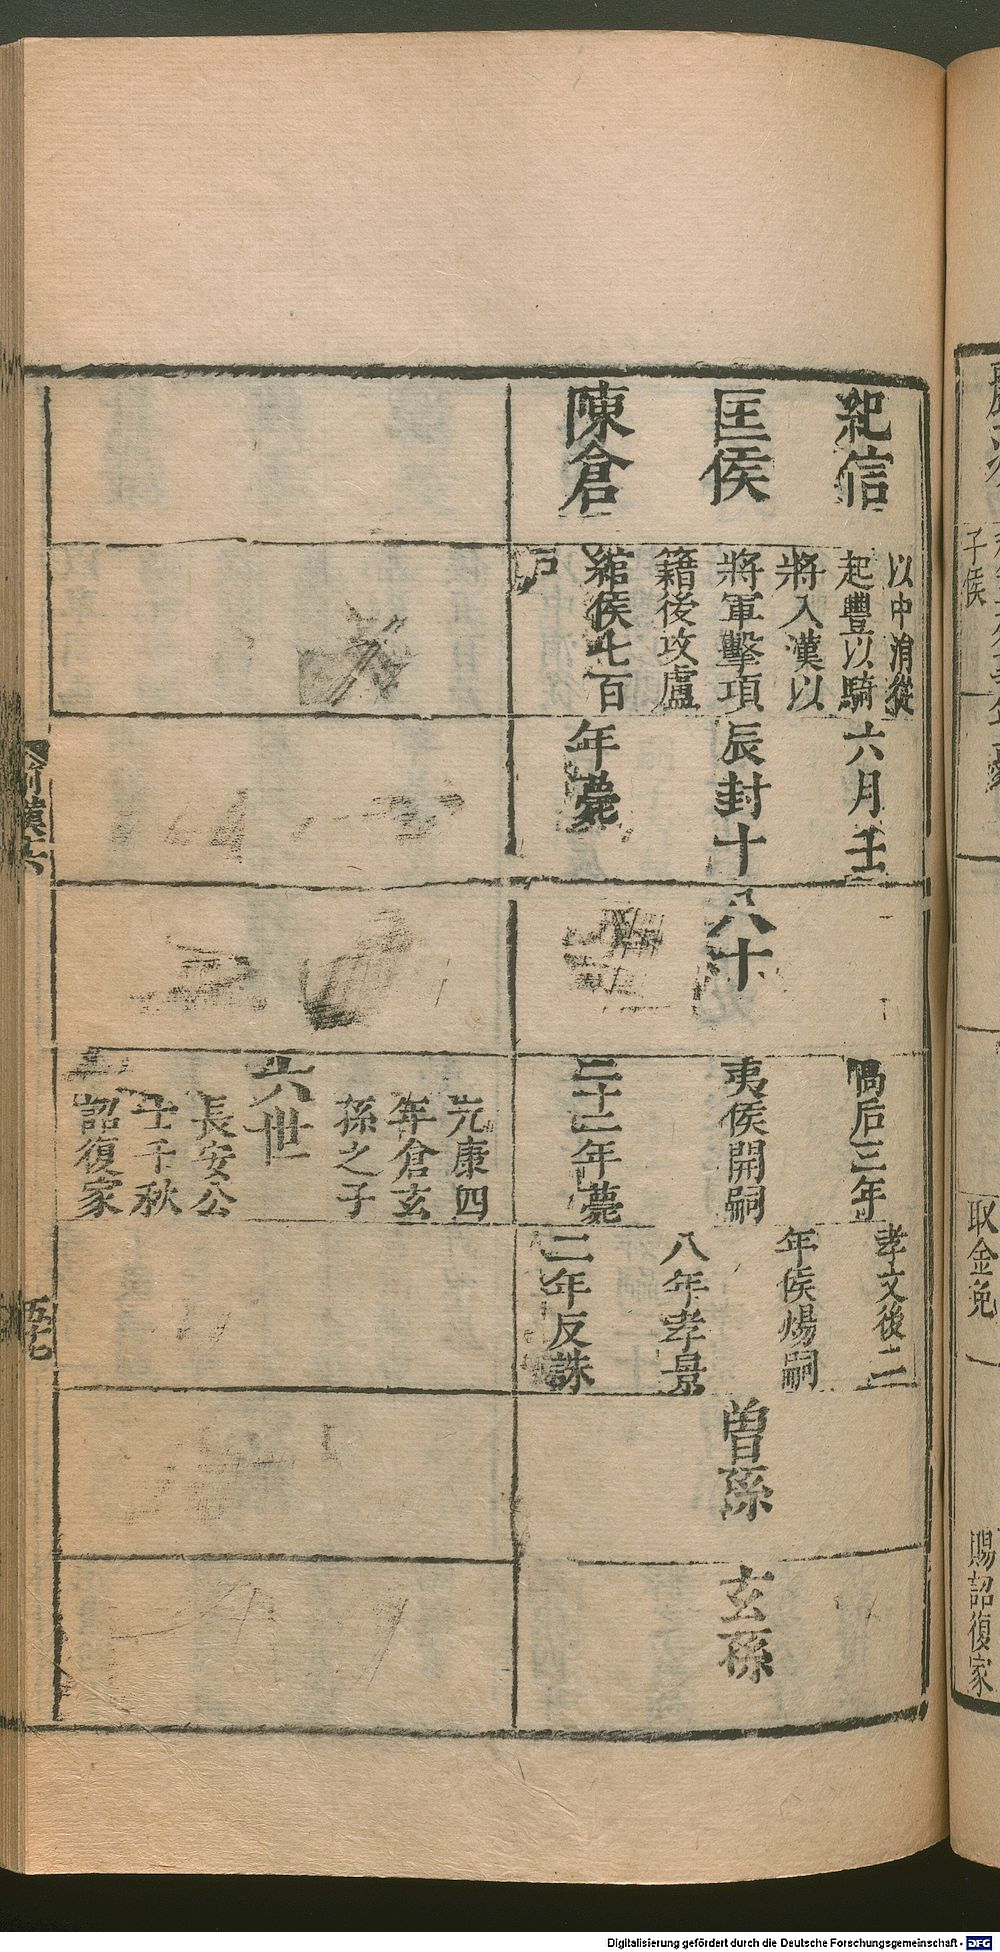 紀信
匡侯
陳倉
以中涓從
起豐以騎
將入漢以
將軍擊項
籍後攻盧
綰侯七百
戶
六月壬
辰封十
年薨
八十
高后三年
夷侯開嗣
二十二年薨
孝文後二
年侯煬嗣
八年孝景
二年反誅
曾孫
玄孫
元康四
年倉玄
孫之子
六世
長安公
士千秋
詔復家
子侯
取金免
賜詔復家
五七
Digitalisierung gefördert durch die Deutsche Forschungsgemeinschaft - DFG